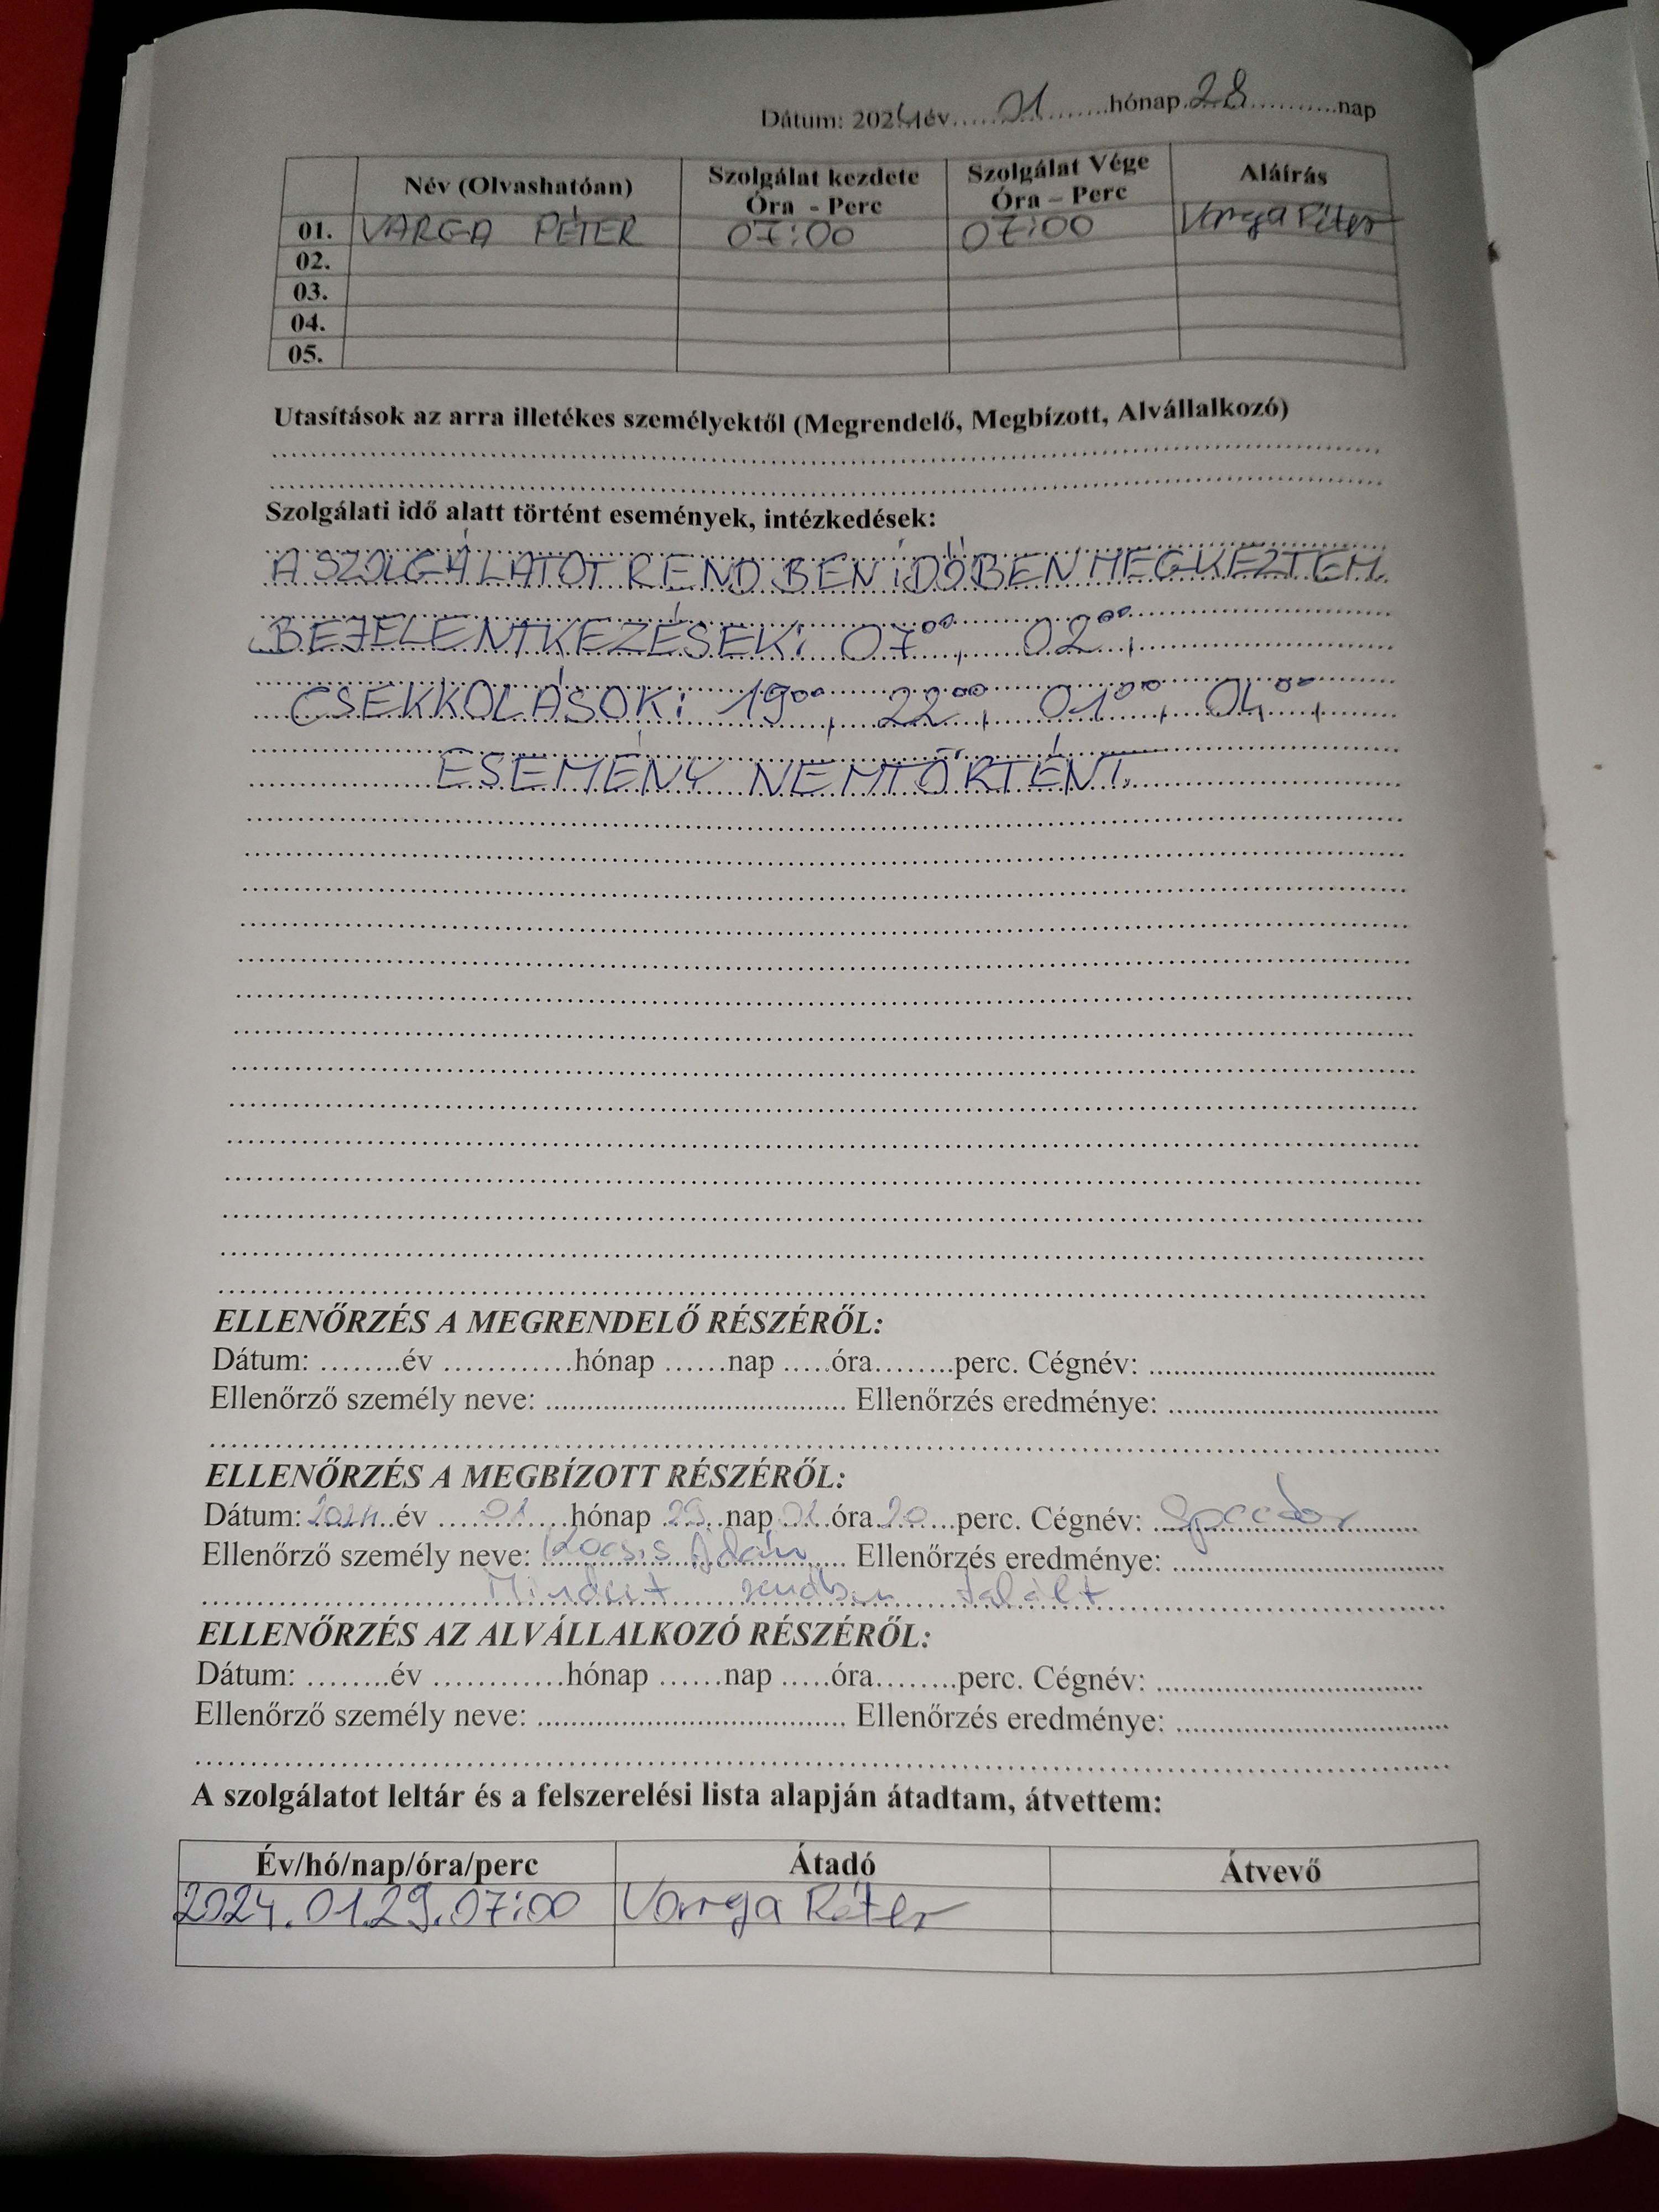 Dátum: 2024 év 01 hónap 28 nap
Név (Olvashatóan) Szolgálat kezdete Óra - Perc Szolgálat Vége Óra – Perc Aláírás
01. VARGA PÉTER 07:00 07:00 Varga Péter
02.
03.
04.
05.
Utasítások az arra illetékes személyektől (Megrendelő, Megbízott, Alvállalkozó)
Szolgálati idő alatt történt események, intézkedések:
A SZOLGÁLATOT RENDBEN IDŐBEN MEGKEZTEM.
BEJELENTKEZÉSEK: 07⁰⁰, 02⁰⁰,
CSEKKOLÁSOK: 19⁰⁰, 22⁰⁰, 01⁰⁰, 04⁰⁰,
ESEMÉNY NEM TÖRTÉNT.
ELLENŐRZÉS A MEGRENDELŐ RÉSZÉRŐL:
Dátum: ........év ............hónap ......nap .....óra........perc. Cégnév: ........
Ellenőrző személy neve: ........ Ellenőrzés eredménye: ........
ELLENŐRZÉS A MEGBÍZOTT RÉSZÉRŐL:
Dátum: 2024 év 01 hónap 29 nap óra 20 perc. Cégnév:
Ellenőrző személy neve: Kocsis Ádám Ellenőrzés eredménye:
Mindent rendben talált
ELLENŐRZÉS AZ ALVÁLLALKOZÓ RÉSZÉRŐL:
Dátum: ........év ............hónap ......nap .....óra........perc. Cégnév: ........
Ellenőrző személy neve: ........ Ellenőrzés eredménye: ........
A szolgálatot leltár és a felszerelési lista alapján átadtam, átvettem:
Év/hó/nap/óra/perc Átadó Átvevő
2024.01.29.07:00 Varga Péter